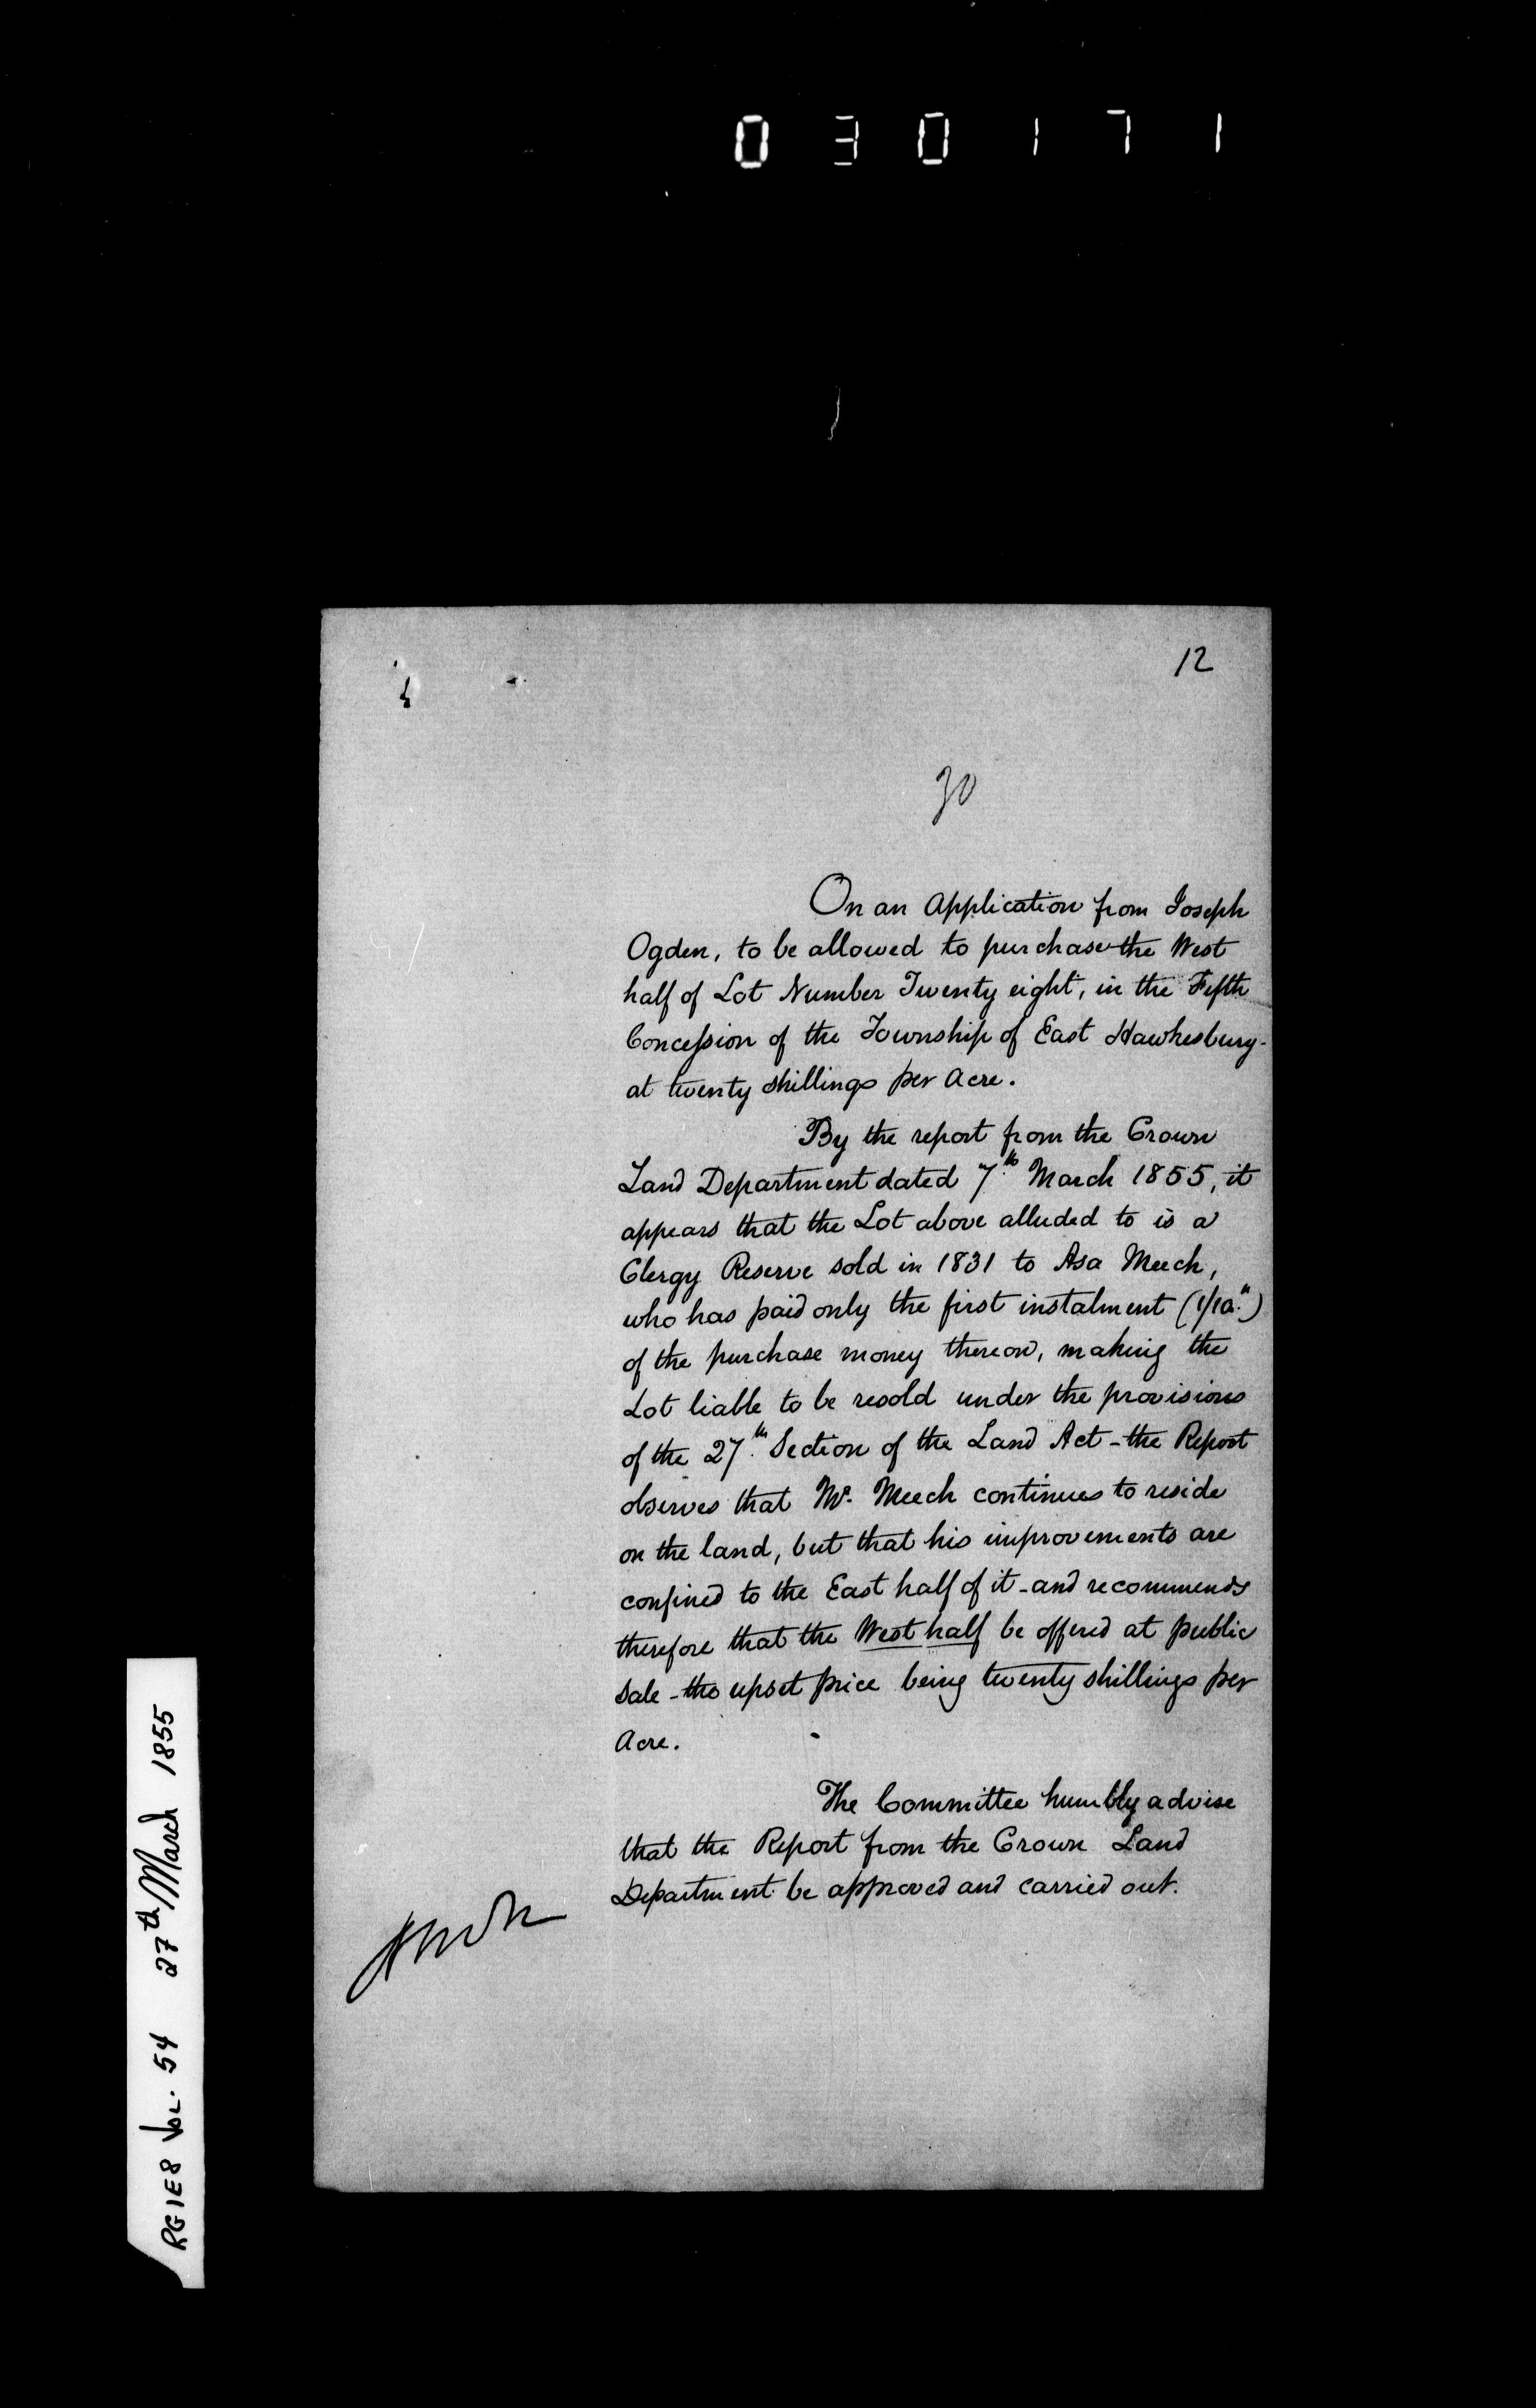 030171
12
30
On an Application from Joseph
Ogden, to be allowed to purchase the West
half of Lot Number Twenty eight, in the Fifth
Concession of the Township of East Hawkesbury-
at twenty shillings per Acre.
By the report from the Crown
Land Department dated 7.th March 1855, it
appears that the Lot above alluded to is a
Clergy Reserve sold in 1831 to Asa Meech,
who has paid only the first instalment (1/10.th)
of the purchase money thereon, making the
Lot liable to be resold under the provisions
of the 27.th Section of the Land Act - the Report
observes that Mr. Meech continues to reside
on the land, but that his improvements are
confined to the East half of it - and recommends
therefore that the West half be offered at public
Sale - the upset price being twenty shillings per
Acre.
The Committee humbly advise
that the Report from the Crown Land
Department be approved and carried out.
RG1E8 Vol. 54 27th March 1855